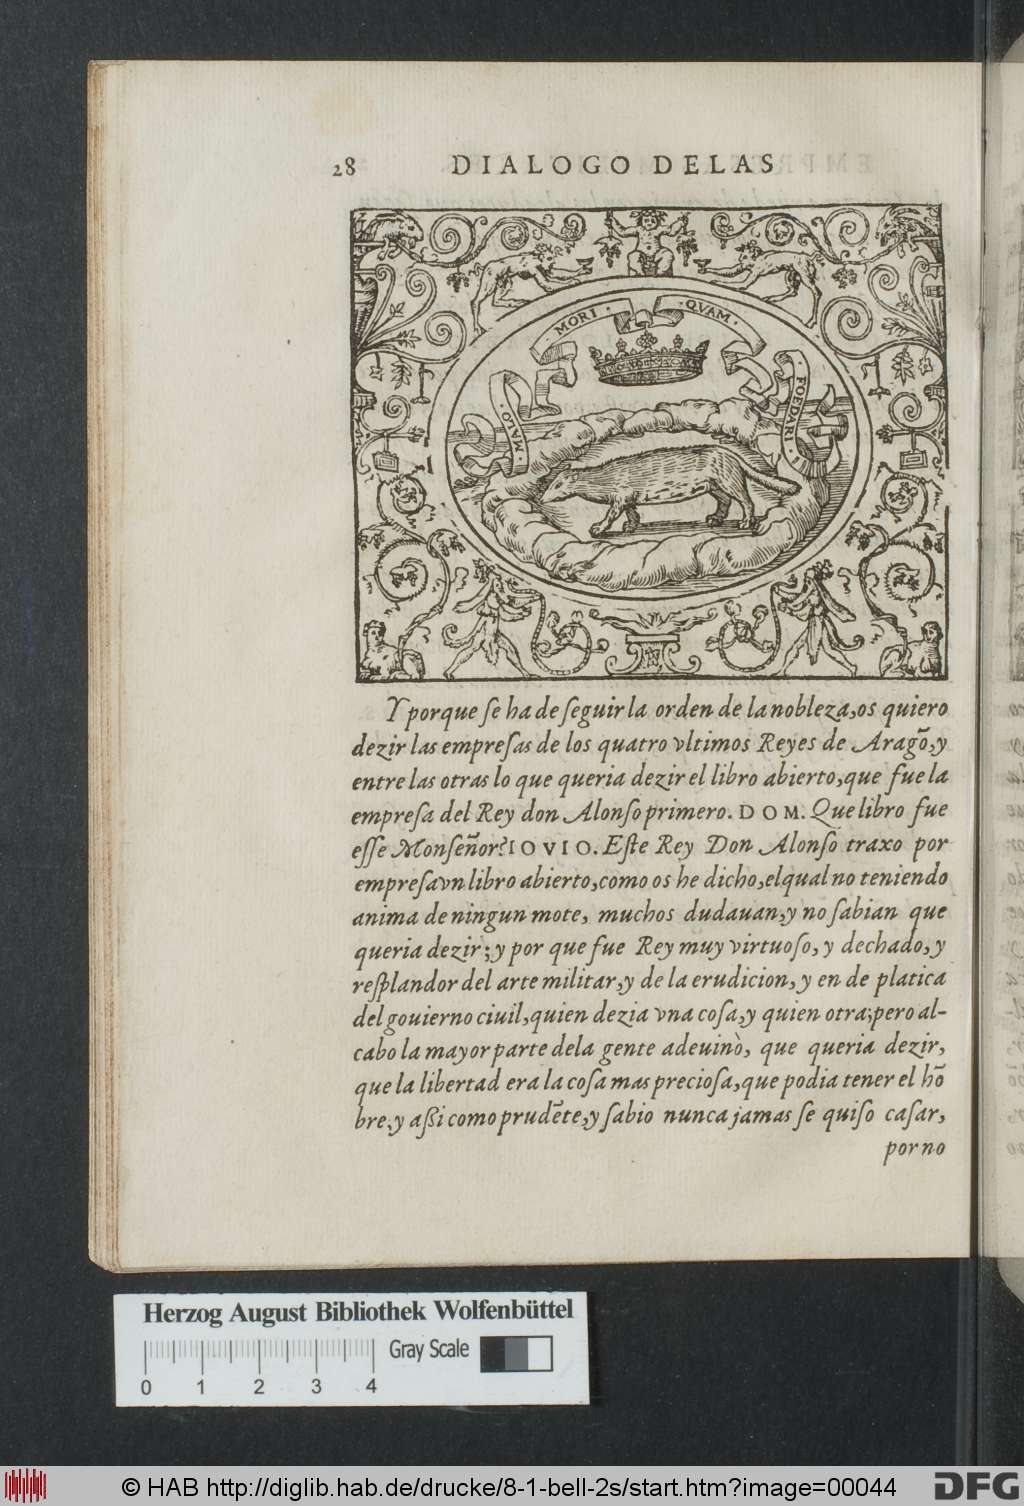 28 DIALOGO DELAS
MALO · MORI · QVAM · FOEDARI ·
Y porque ſe ha de ſeguir la orden de la nobleza, os quiero
dezir las empreſas de los quatro vltimos Reyes de Aragō, y
entre las otras lo que queria dezir el libro abierto, que fue la
empreſa del Rey don Alonſo primero. DOM. Que libro fue
eſſe Monſeñor? IOVIO. Eſte Rey Don Alonſo traxo por
empreſa vn libro abierto, como os he dicho, el qual no teniendo
anima de ningun mote, muchos dudauan, y no ſabian que
queria dezir; y por que fue Rey muy virtuoſo, y dechado, y
reſplandor del arte militar, y de la erudicion, y en de platica
del gouierno ciuil, quien dezia vna coſa, y quien otra; pero al-
cabo la mayor parte dela gente adeuinò, que queria dezir,
que la libertad era la coſa mas precioſa, que podia tener el hō
bre, y aßi como prudēte, y ſabio nunca jamas ſe quiſo caſar,
por no
Herzog August Bibliothek Wolfenbüttel
Gray Scale
0 1 2 3 4
© HAB http://diglib.hab.de/drucke/8-1-bell-2s/start.htm?image=00044
DFG